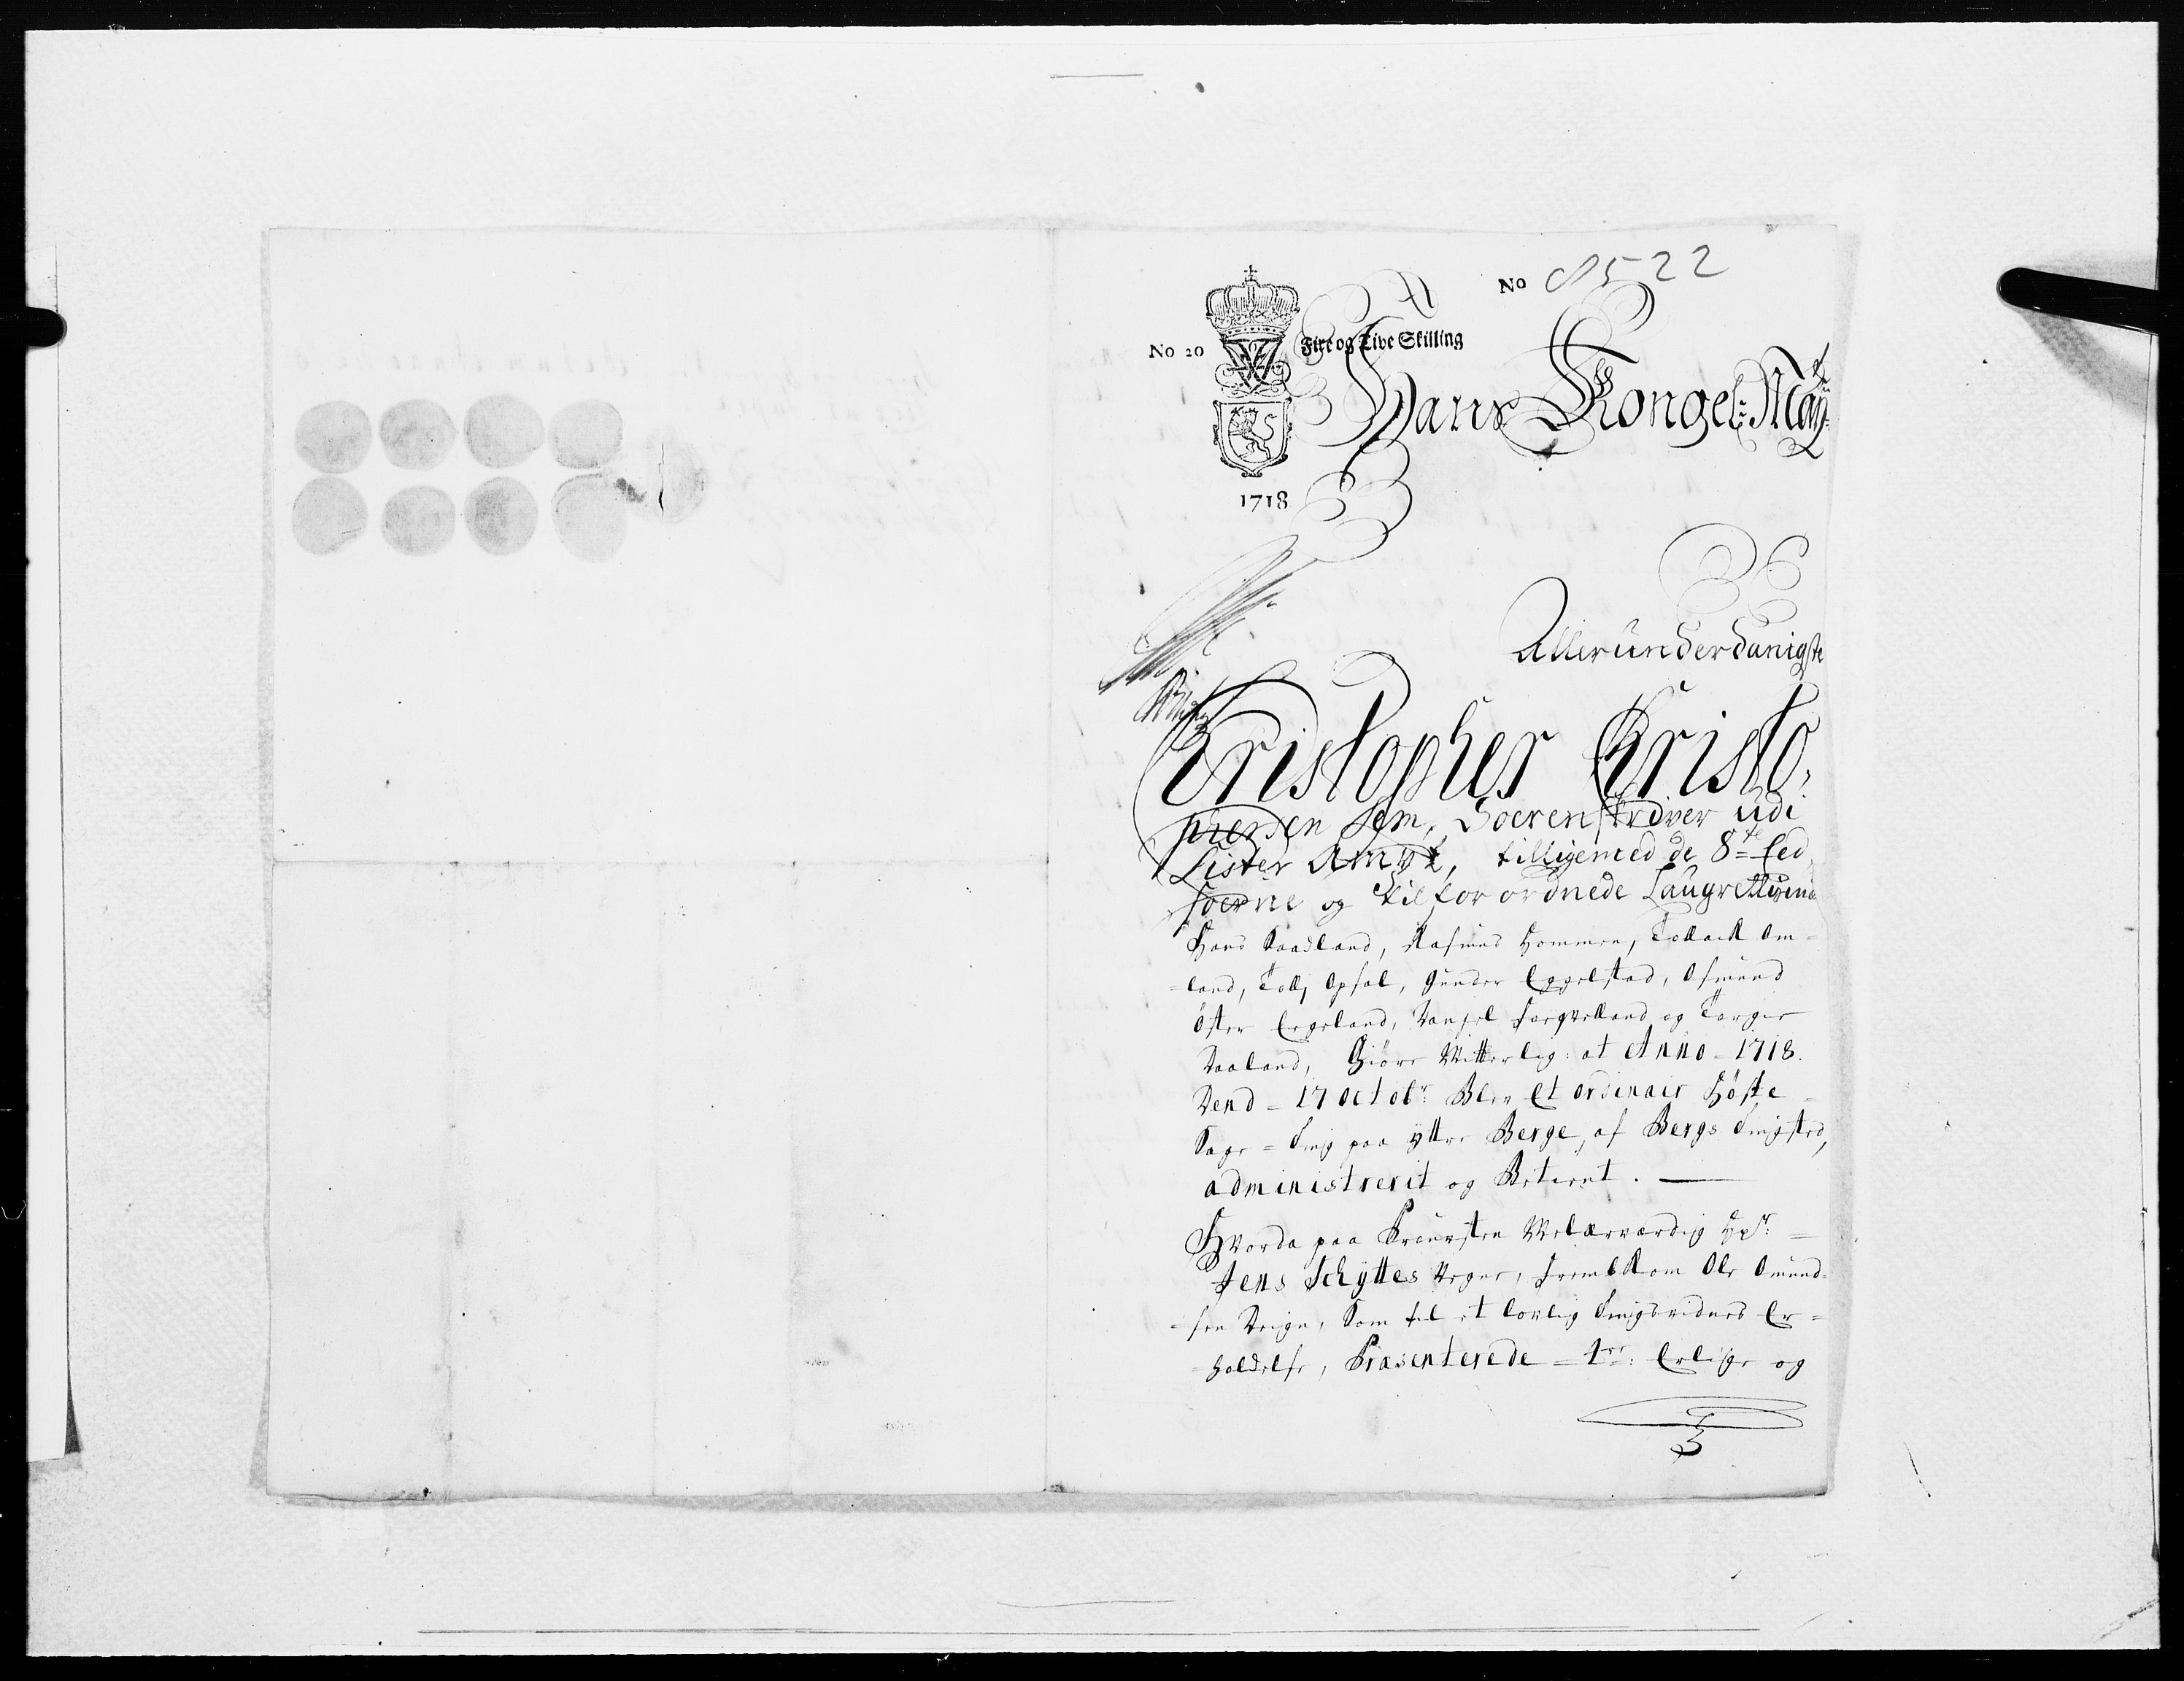 No 8522
No 20 Fire og Tive Skilling
Hans Kongel: May:
1718
Allerunderdanigste
Christopher Christo,
phersen Sem, Soerenskriver udi
Lister Ambt, tilligemed de 8te Eed,
soerne og tilforordnede Laugrettismænd
Hans Raadland, Rasmus Hommen, Tollach Om=
=land, Tolley Opsal, Gunder Eggelstad, Osmund
Øster Ergeland, Torgier
Raaland, Giøre Witterlig: at Anno = 1718.
Dend = 17 Octobr: Blev Et ordinair Høste =
Sage = Ting paa yttre Berge, af Bergs Tingsted,
administrerit og Betient.
Hvorda paa Prousten Welærværdig Hr:
Jens Schyttes Vegne, fremkom Ole Omund=
=sen Veige, Som til et lovlig Tingsvidnes Er=
=holdelse, Præsenterede = 4re: Erlige og